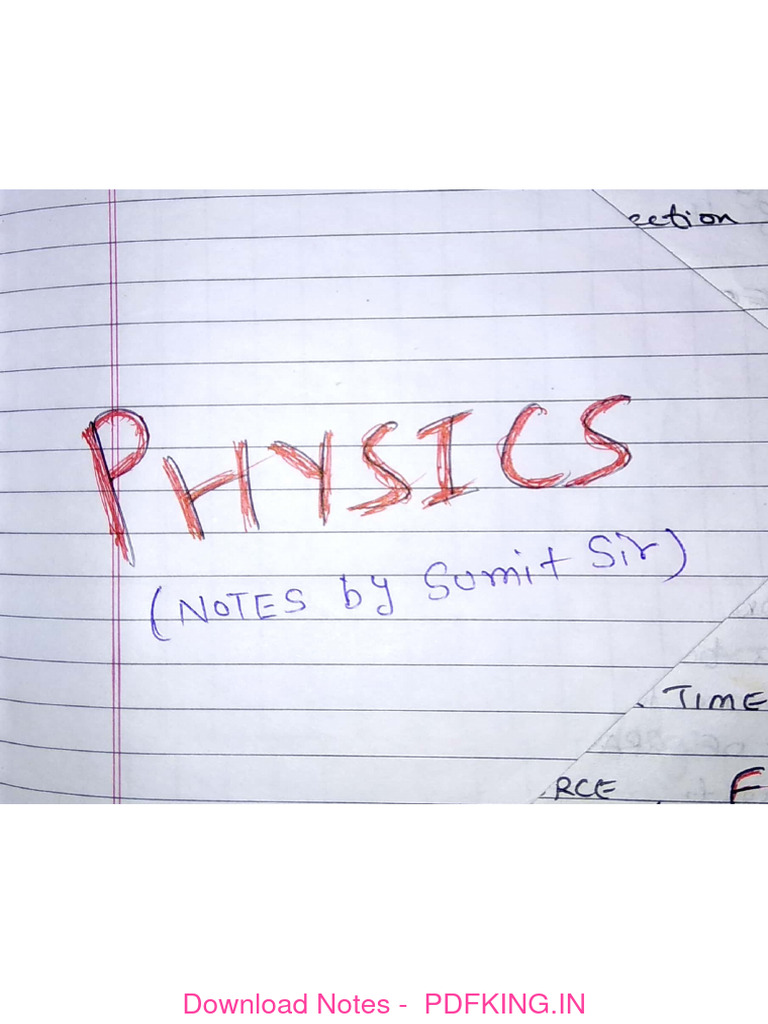 ection
PHYSICS
(NOTES by Sumit Sir)
TIME
RCE F
Download Notes - PDFKING.IN